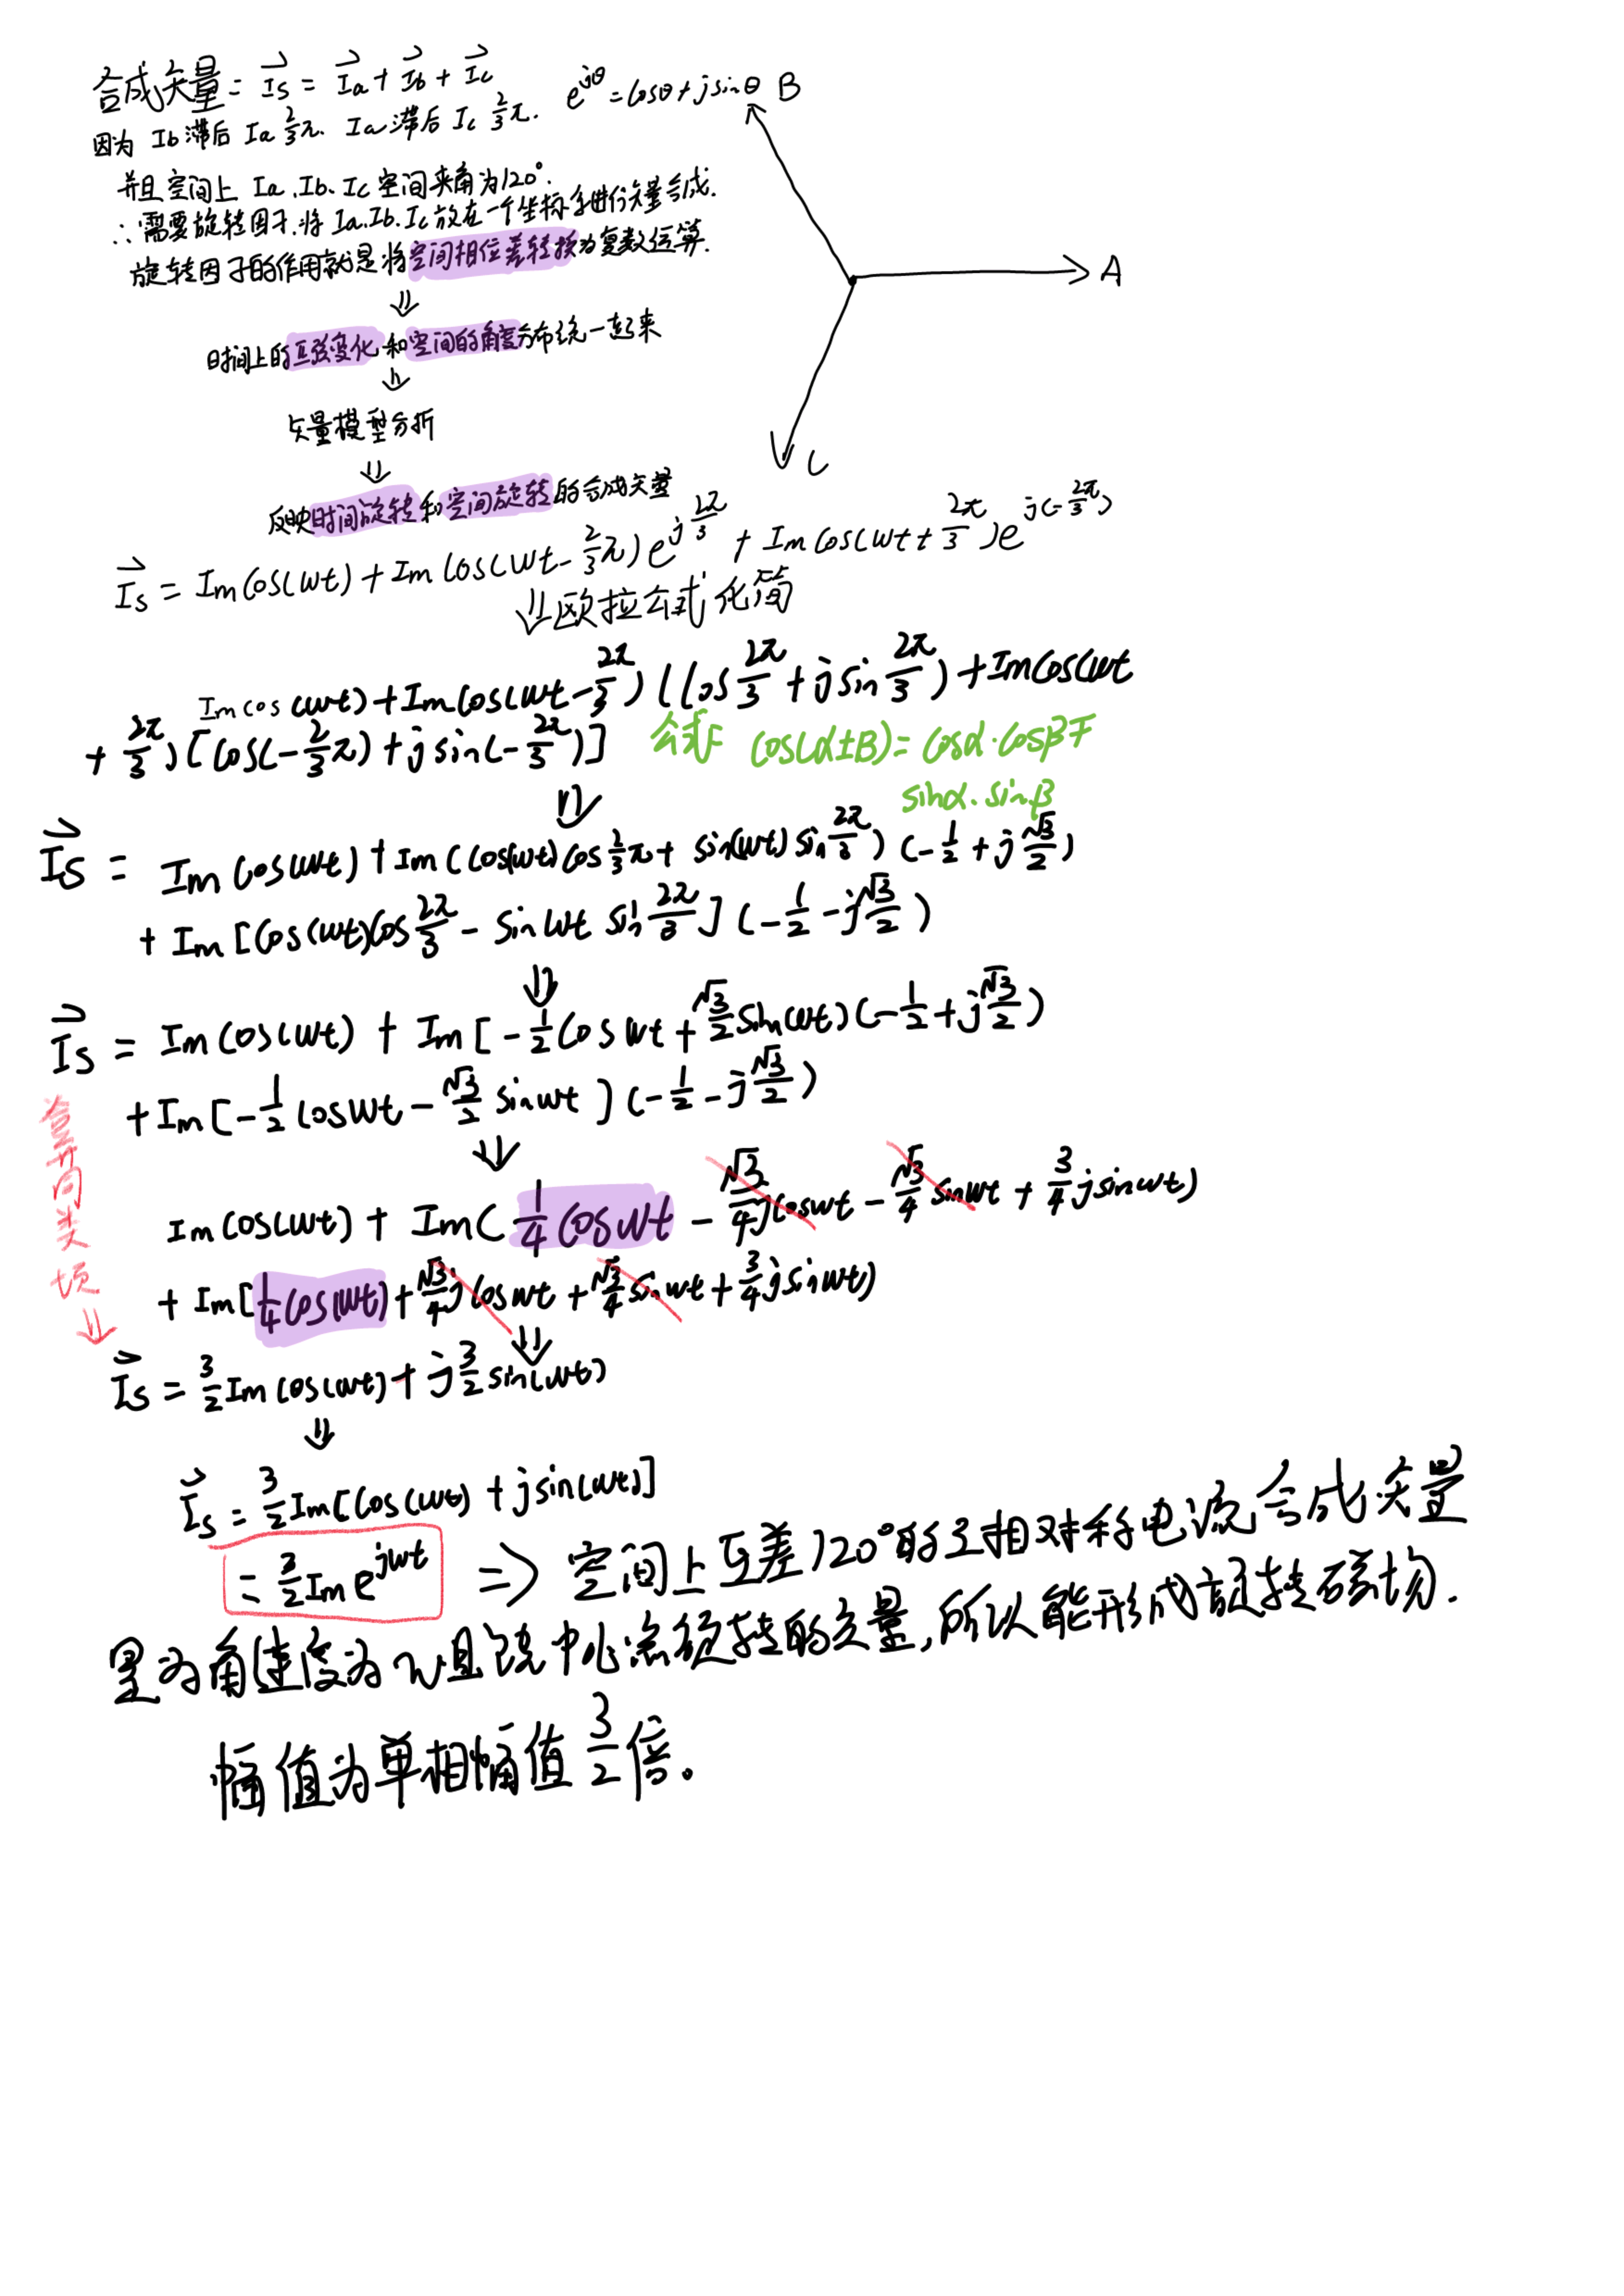 合成矢量 = I⃗s = I⃗a + I⃗b + I⃗c   e^{jθ} = cosθ + jsinθ
B
因为 Ib 滞后 Ia 2/3π. Ia 滞后 Ic 2/3π.
并且空间上 Ia.Ib、Ic 空间夹角为120°.
∴需要旋转因子.将 Ia.Ib.Ic 放在一个坐标系进行矢量合成.
旋转因子的作用就是将空间相位差转换为复数运算.
A
⇓
时间上的正弦变化和空间的角度分布统一起来
⇓
矢量模型分析
C
⇓
反映时间旋转和空间旋转的合成矢量
I⃗s = Im cos(wt) + Im cos(wt - 2/3π) e^{j 2π/3} + Im cos(wt + 2π/3) e^{j(-2π/3)}
⇓欧拉公式化简
Im cos (wt) + Im cos(wt - 2π/3) (cos 2π/3 + j sin 2π/3) + Im cos(wt
+ 2π/3) [cos(-2/3π) + j sin(-2π/3)]
公式: cos(α±B) = cosα·cosβ∓
sinα·sinβ
⇓
I⃗s = Im cos(wt) + Im (cos(wt) cos 2/3π + sin(wt) sin 2π/3) (-1/2 + j √3/2)
+ Im [cos(wt) cos 2π/3 - sin wt sin 2π/3] (-1/2 - j √3/2)
⇓
I⃗s = Im cos(wt) + Im [-1/2 cos wt + √3/2 sin wt) (-1/2 + j √3/2)
+ Im [-1/2 cos wt - √3/2 sin wt] (-1/2 - j √3/2)
合并同类项 ⇓
⇓
Im cos(wt) + Im( 1/4 cos wt - √3/4 j cos wt - √3/4 sin wt + 3/4 j sin wt)
+ Im [1/4 cos(wt) + √3/4 j cos wt + √3/4 sin wt + 3/4 j sin wt)
⇓
I⃗s = 3/2 Im cos(wt) + j 3/2 sin(wt)
⇓
I⃗s = 3/2 Im [cos(wt) + j sin(wt)]
= 3/2 Im e^{jwt} ⇒ 空间上互差120°的三相对称电流合成矢量
是为角速度为w且绕中心点旋转的矢量,所以能形成旋转磁场.
幅值为单相幅值 3/2 倍。